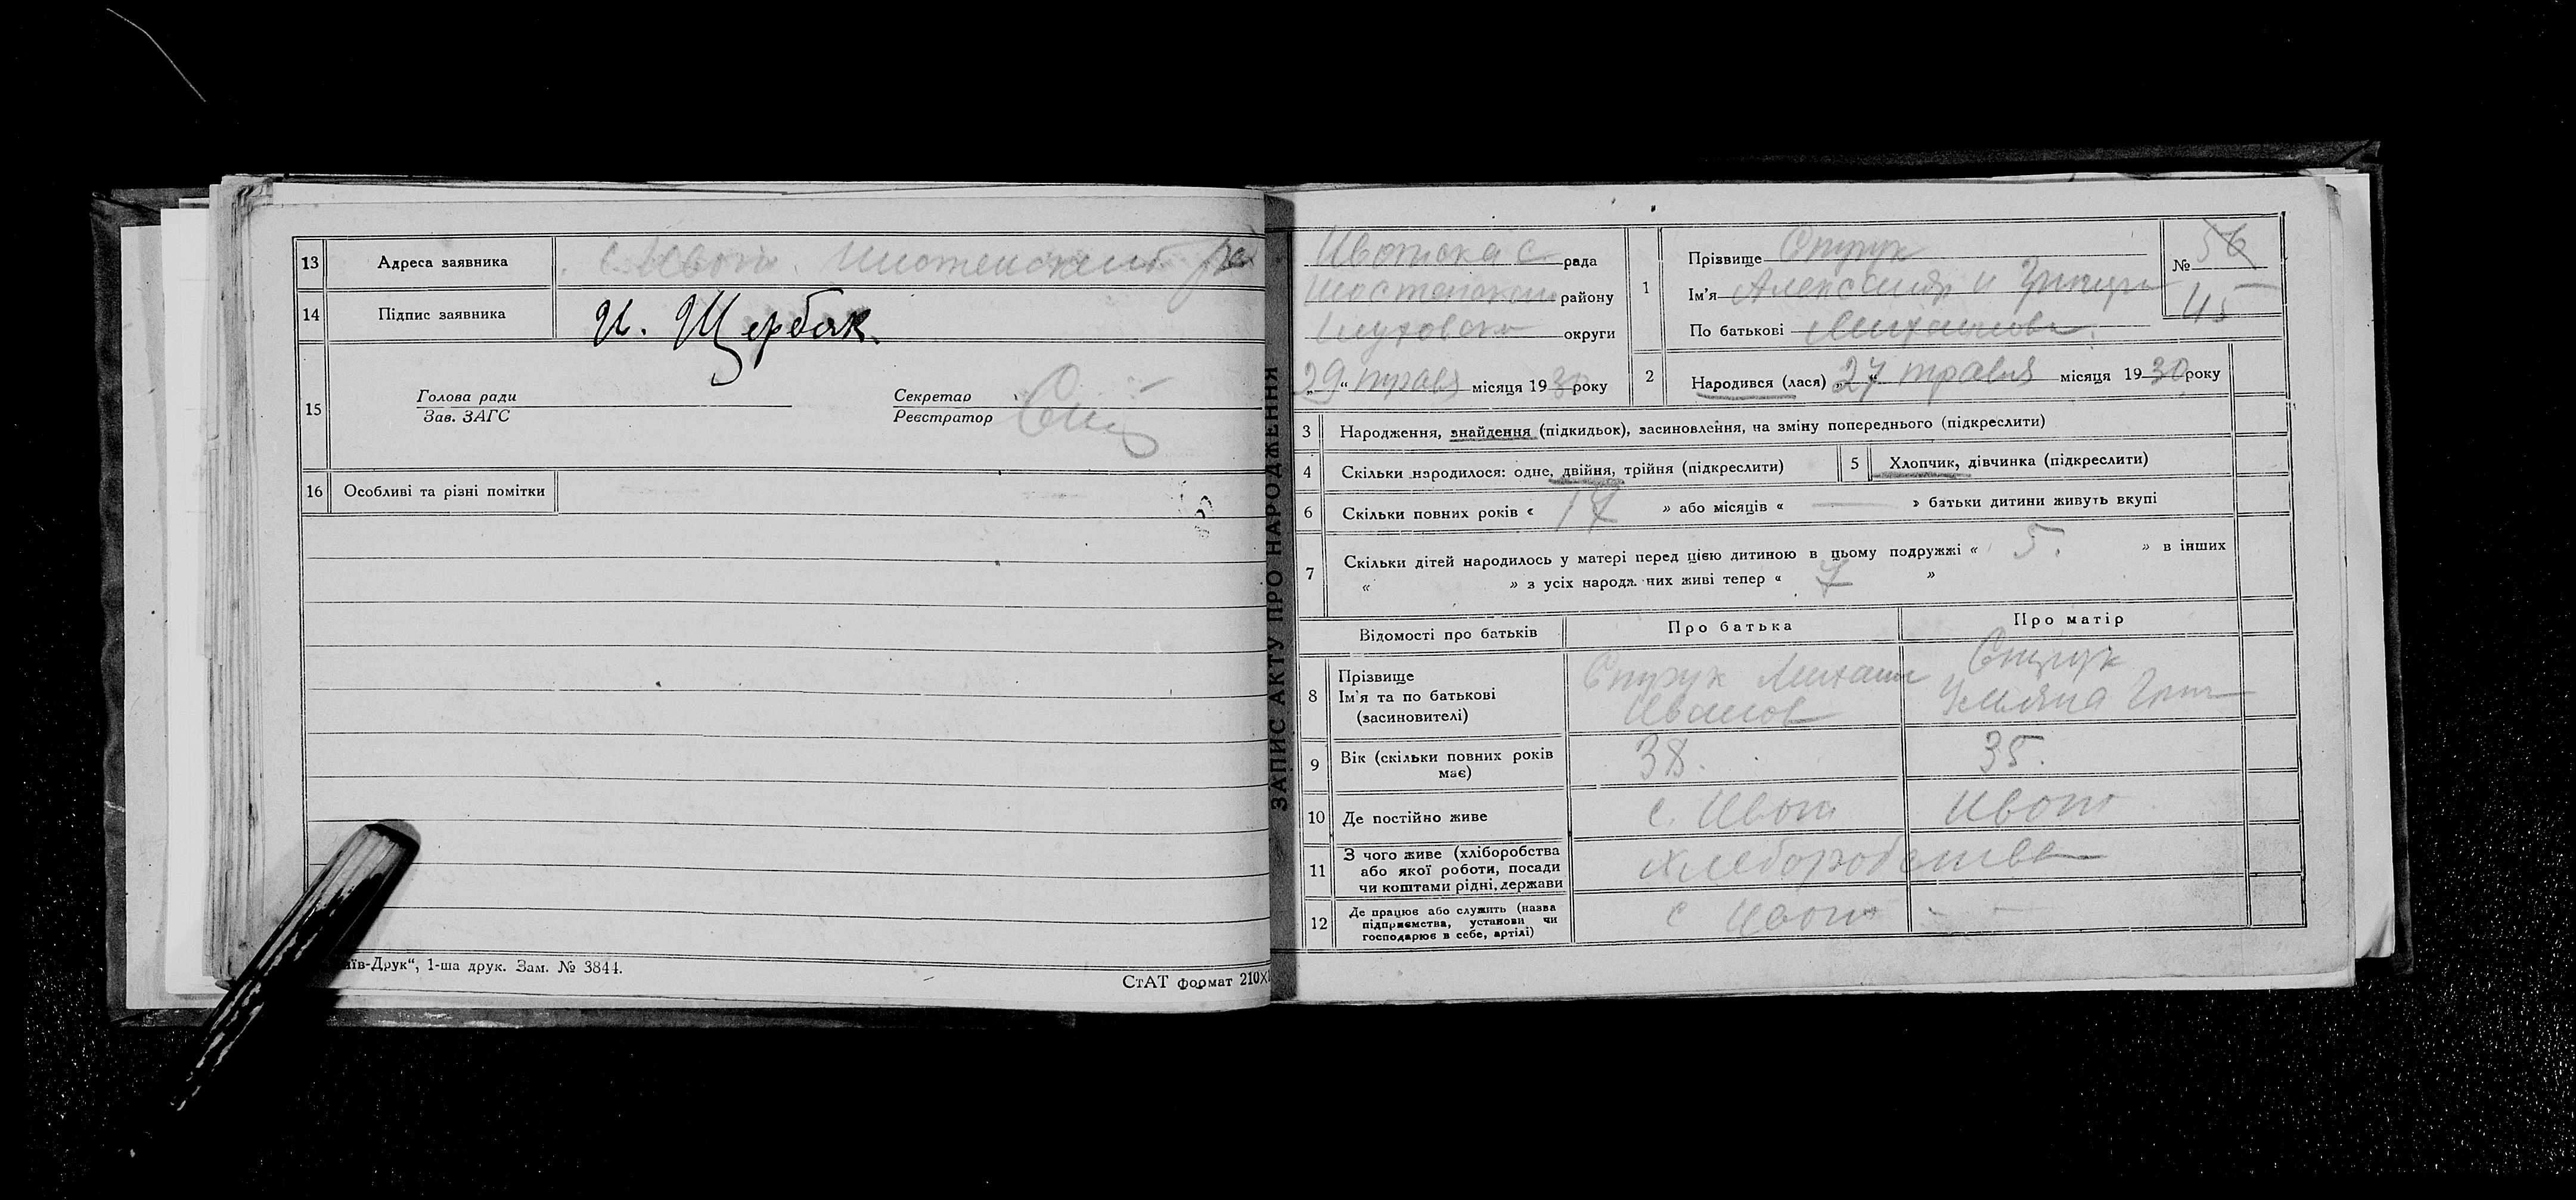 13 Адреса заявника с. Ивот Шостенский ра
14 Підпис заявника И. Щербак.
15 Голова ради
Зав. ЗАГС
Секретар
Реєстратор
16 Особливі та різні помітки
їв-Друк“, 1-ша друк. Зам. № 3844.
СтАТ формат 210X
ЗАПИС АКТУ ПРО НАРОДЖЕННЯ
Ивотска с. рада
району
округи
„29“ травя місяця 1930 року
1 Прізвище Струк
Ім'я Александр и Григори
По батькові Михайлов.
№ 56
45
2 Народився (лася) „27“ травля місяця 1930 року
3 Народження, знайдення (підкидьок), засиновлення, на зміну попереднього (підкреслити)
4 Скільки народилося: одне, двійня, трійня (підкреслити) 5 Хлопчик, дівчинка (підкреслити)
6 Скільки повних років « 17 » або місяців « — » батьки дитини живуть вкупі
7 Скільки дітей народилось у матері перед цією дитиною в цьому подружжі « 5. » в інших
« » з усіх народж. них живі тепер « 7 »
Відомості про батьків Про батька Про матір
8 Прізвище
Ім'я та по батькові
(засиновителі)
Струк Михаил
Иванов
Струк
Ульяна Григ
9 Вік (скільки повних років
має)
38. 35.
10 Де постійно живе с. Ивот Ивот
11 З чого живе (хліборобства
або якої роботи, посади
чи коштами рідні, держави
Хлеборобства
12 Де працює або служить (назва
підприємства, установи чи
господарює в себе, артілі)
с Ивот - —